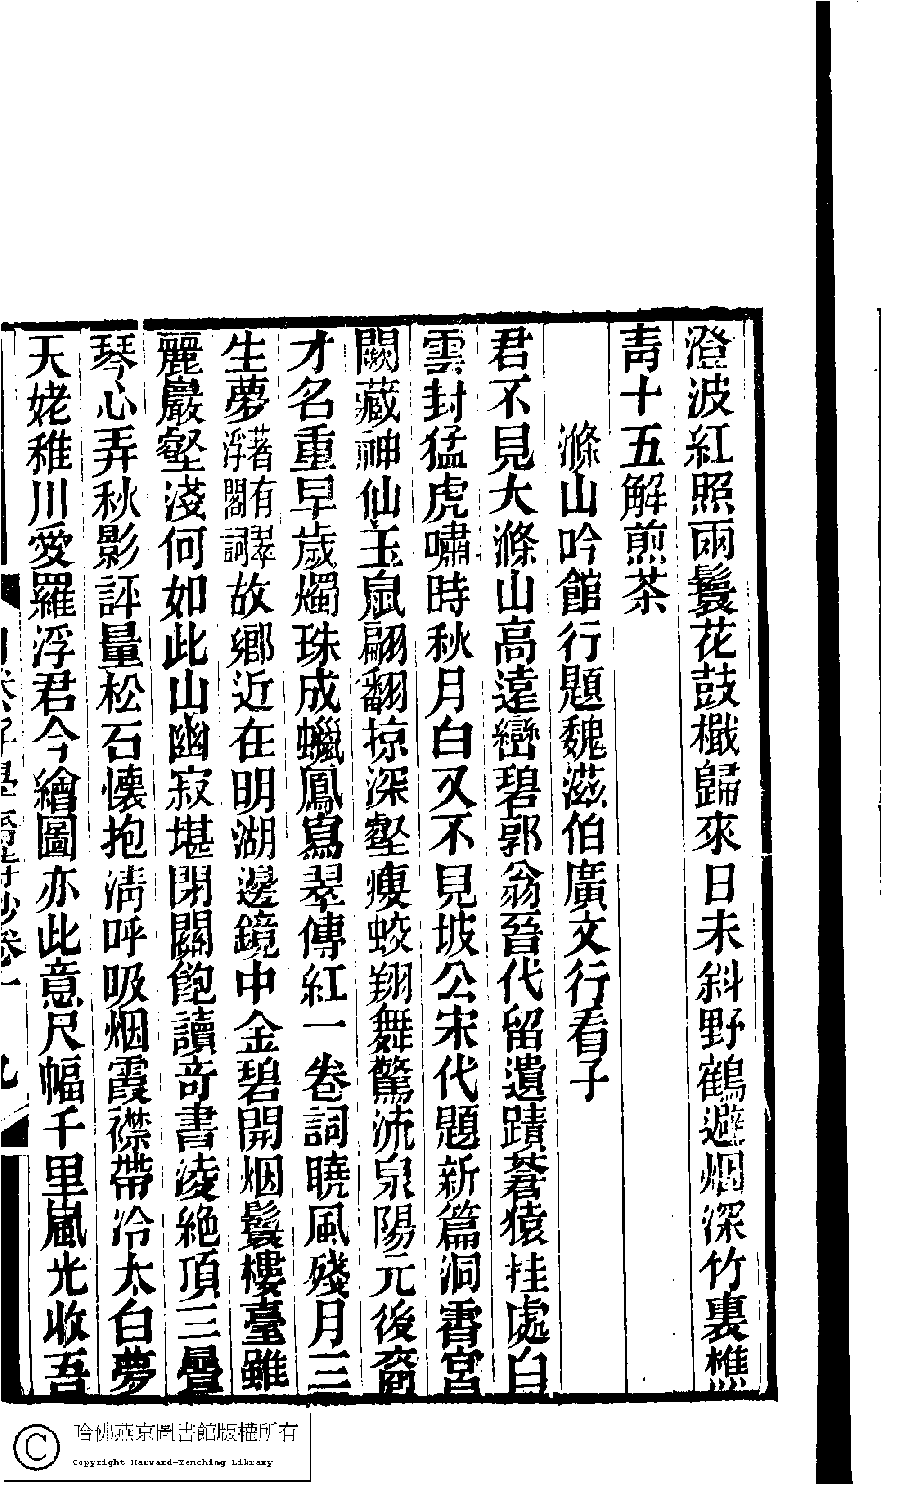 澄波紅照兩鬟花鼓檝歸來日未斜野鶴避烟深竹裏樵
青十五解煎茶
滌山吟館行題魏滋伯廣文行看子
君不見大滌山高遠巒碧郭翁晉代留遺蹟蒼猿挂處白
雲封猛虎嘯時秋月白又不見坡公宋代題新篇洞霄宮
闕藏神仙玉鼠翩翻掠深壑瘦蛟翔舞驚流泉陽元後裔
才名重早歲燭珠成蠟鳳寫翠傳紅一卷詞曉風殘月三
生夢著有翠浮閣詞故鄉近在明湖邊鏡中金碧開烟鬟樓臺雖
麗巖壑淺何如此山幽寂堪閉關飽讀奇書淩絕頂三疊
琴心弄秋影評量松石懷抱清呼吸烟霞襟帶冷太白夢
天姥稚川愛羅浮君今繪圖亦此意尺幅千里嵐光收吾
哈佛燕京圖書館版權所有
Copyright Harvard-Yenching Library